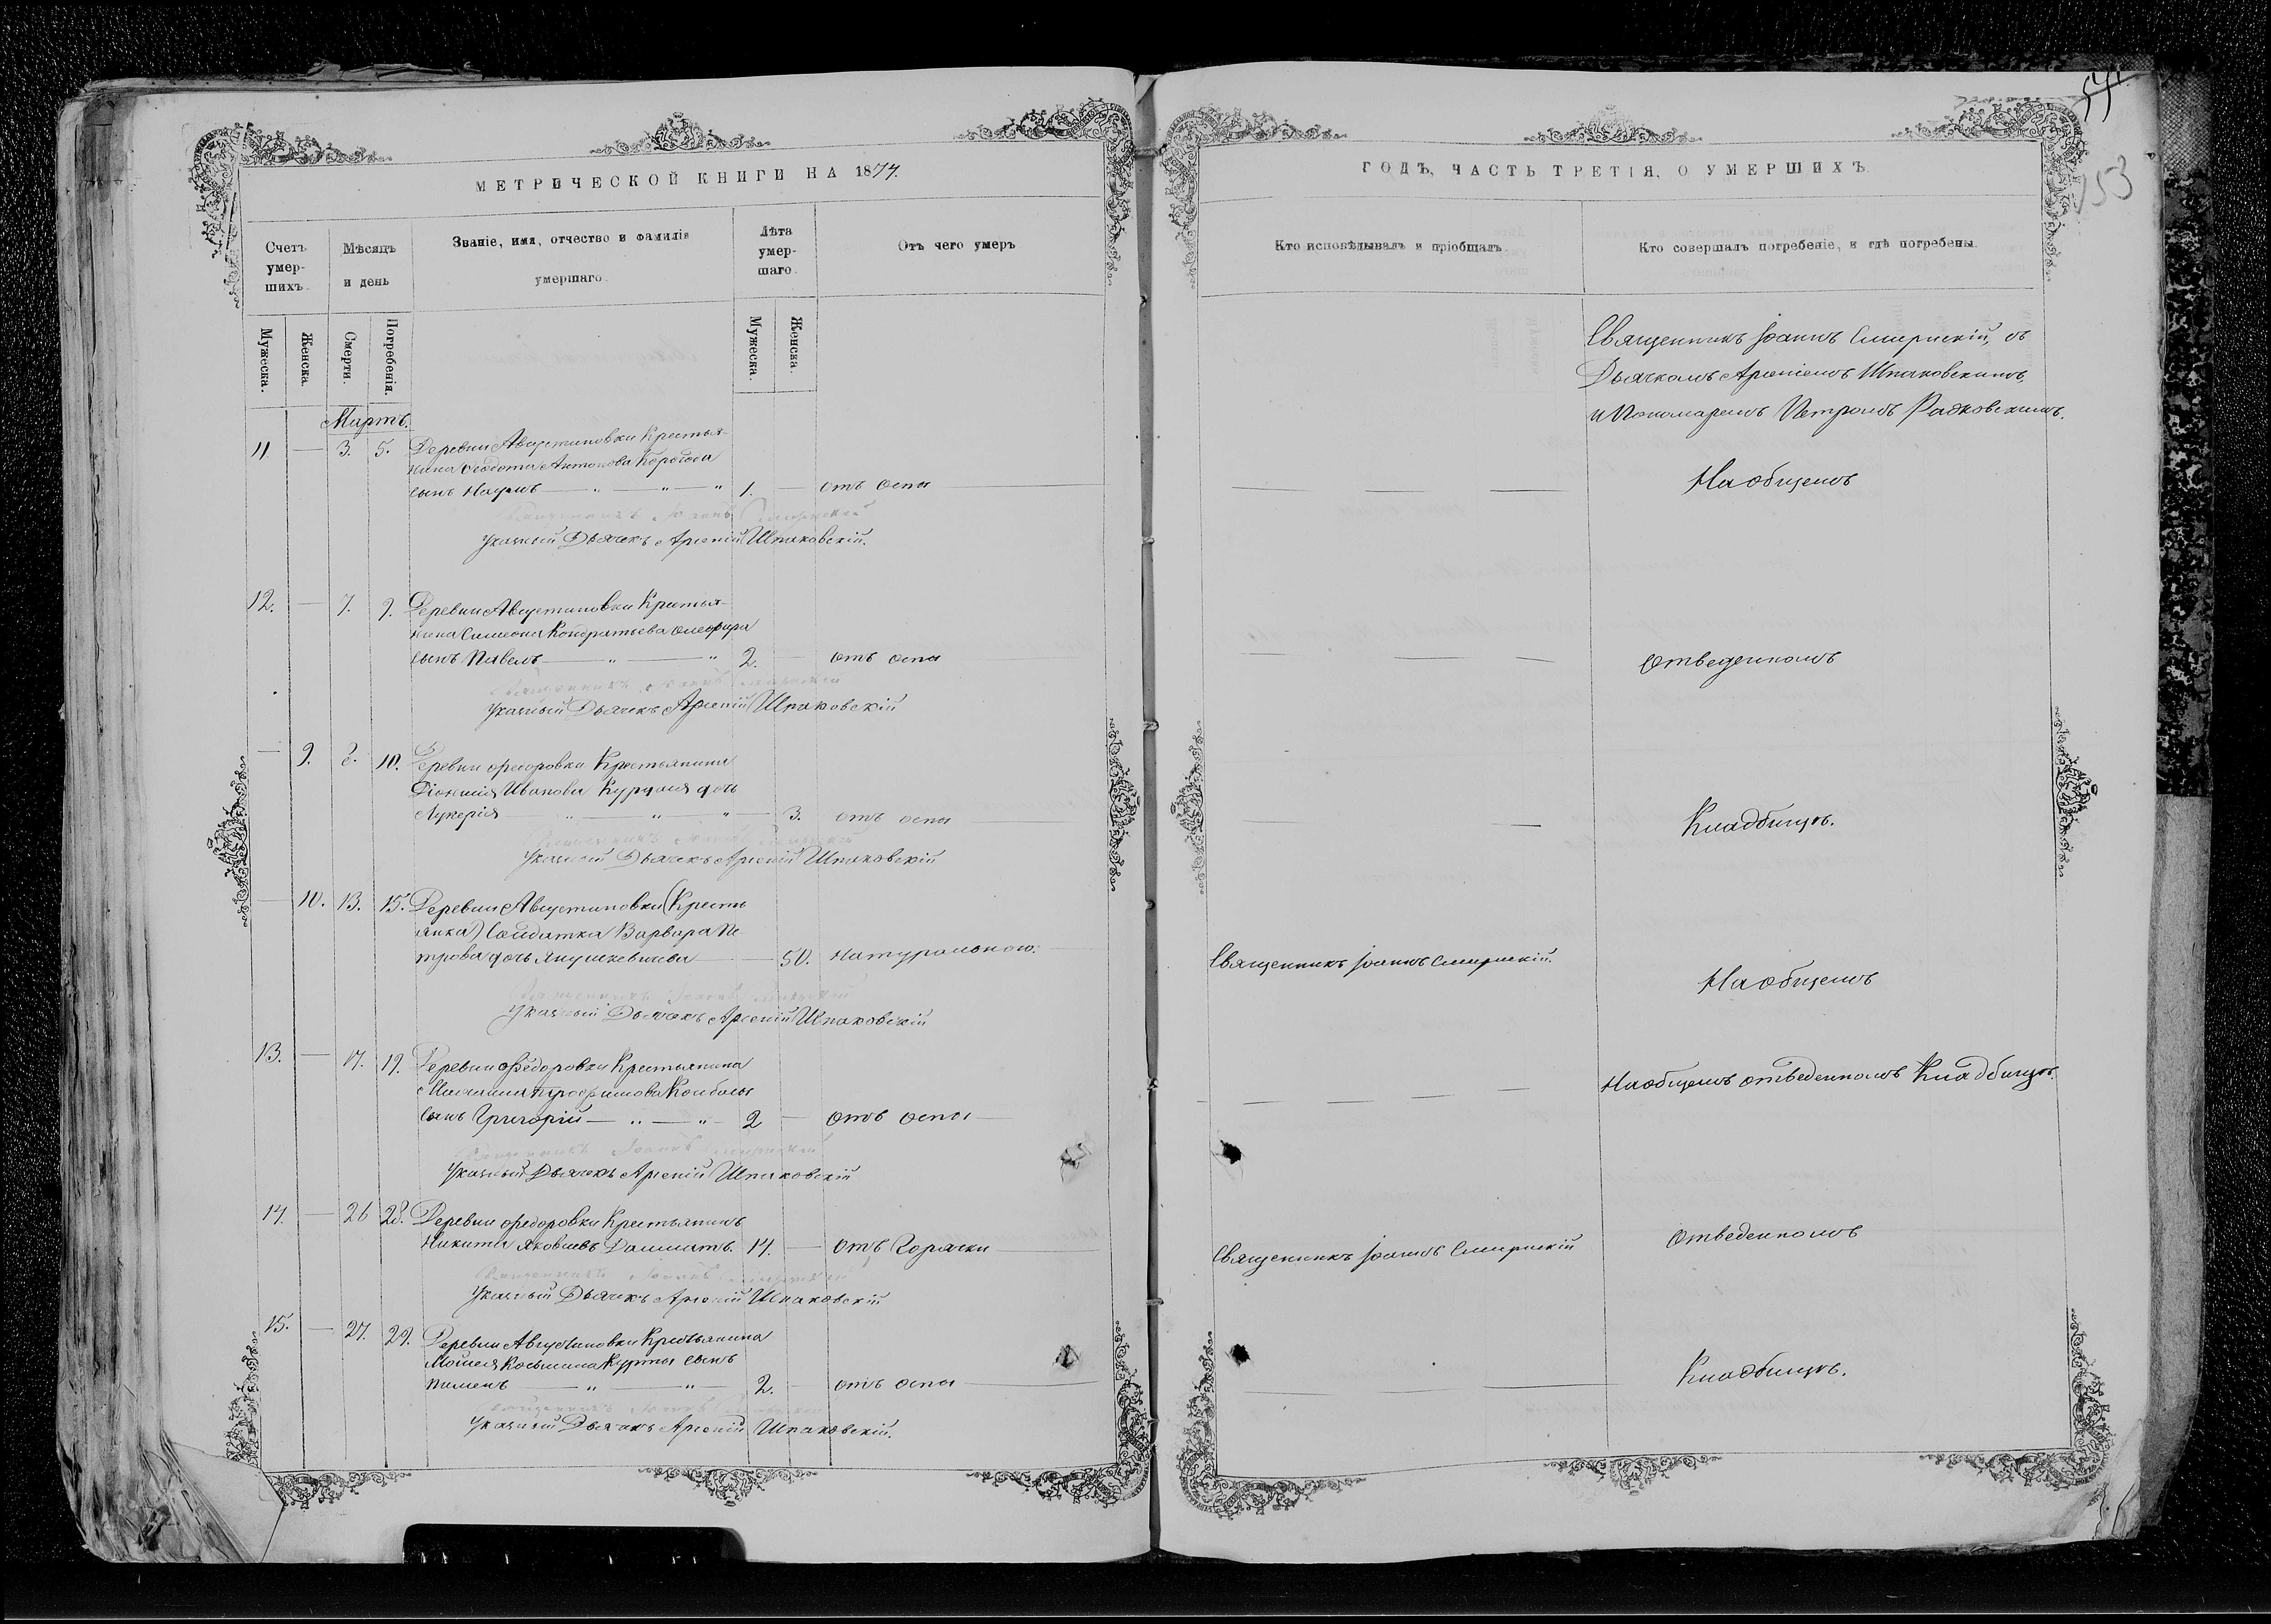 МЕТРИЧЕСКОЙ КНИГИ НА 1874.
Счетъ умер-шихъ.
Мѣсяцъ и день
Званіе, имя, отчество и фамилія умершаго.
Лѣта умер-шаго.
Отъ чего умеръ
Мужеска.
Женска.
Смерти.
Погребенія.
Мужеска.
Женска.
Мартъ.
11 — 3. 5. Деревни Августиновки Крестья-
нина Ѳеодота Антонова
сынъ Наумъ — „ — „ — „ 1. — отъ оспы
Священникъ Іоаннъ
Указный Дьячекъ Арсеній Шпаковскій.
12. — 7. 9. Деревни Августиновки Крестья-
нина Симеона Кондратьева
сынъ Павелъ — „ — „ 2. — отъ оспы
Священникъ Іоаннъ
Указный Дьячекъ Арсеній Шпаковскій
— 9. 8. 10. Деревни Федоровки Крестьянина
Діонисія Иванова дочь
Лукерія — „ — „ — „ — 3. отъ оспы
Священникъ Іоаннъ
Указный Дьячекъ Арсеній Шпаковскій
— 10. 13. 15. Деревни Августиновки (Кресть
янка) Солдатка Варвара Пе-
трова дочь Янушкевичева — 50. Натуральною.
Священникъ Іоаннъ
Указный Дьячекъ Арсеній Шпаковскій
13. — 17. 19. Деревни Федоровки Крестьянина
Трофимова Колбасы
сынъ Григорій — „ — „ — 2 — отъ оспы
Священникъ Іоаннъ
Указный Дьячекъ Арсеній Шпаковскій
14. — 26 28. Деревни Федоровки Крестьянинъ
Никита Яковлевъ 14. — отъ Горячки
Священникъ Іоаннъ
Указный Дьячекъ Арсеній Шпаковскій
15. — 27. 29. Деревни Августиновки Крестьянина
Моисея Косьмина Курты сынъ
Пименъ — „ — „ — 2. — отъ оспы
Священникъ Іоаннъ
Указный Дьячекъ Арсеній Шпаковскій.
153
ГОДЪ, ЧАСТЬ ТРЕТІЯ, О УМЕРШИХЪ.
Кто исповѣдывалъ и пріобщалъ.
Кто совершалъ погребеніе, и гдѣ погребены.
Священникъ Іоаннъ съ
Дьячкомъ Арсеніемъ Шпаковскимъ,
и Пономаремъ Петромъ Радковскимъ.
На общемъ
Отведенномъ
Кладбищѣ.
Священникъ Іоаннъ
На общемъ
На общемъ отведенномъ Кладбищѣ.
Отведенномъ
Священникъ Іоаннъ
Кладбищѣ.